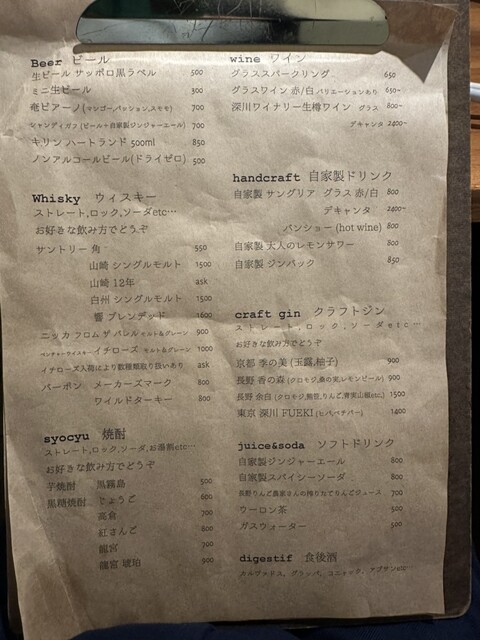 Beer ビール
生ビール サッポロ黒ラベル 500
ミニ生ビール 300
奄ビアーノ(マンゴー,パッション,スモモ) 700
シャンディガフ(ビール+自家製ジンジャーエール) 700
キリン ハートランド 500ml 850
ノンアルコールビール(ドライゼロ) 500
Whisky ウィスキー
ストレート,ロック,ソーダetc…
お好きな飲み方でどうぞ
サントリー 角 550
山崎 シングルモルト 1500
山崎 12年 ask
白州 シングルモルト 1500
響 ブレンデッド 1600
ニッカ フロム ザ バレル モルト&グレーン 900
ベンチャーウイスキー イチローズ モルト&グレーン 1000
イチローズ入荷により数種類取り扱いあり ask
バーボン メーカーズマーク 800
ワイルドターキー 800
syocyu 焼酎
ストレート,ロック,ソーダ,お湯割etc…
お好きな飲み方でどうぞ
芋焼酎 黒霧島 500
黒糖焼酎 じょうご 600
高倉 700
紅さんご 800
龍宮 700
龍宮 琥珀 900
wine ワイン
グラススパークリング 650
グラスワイン 赤/白 バリエーションあり 650~
深川ワイナリー生樽ワイン グラス 800~
デキャンタ 2400~
handcraft 自家製ドリンク
自家製 サングリア グラス 赤/白 800
デキャンタ 2400~
バンショー (hot wine) 800
自家製 大人のレモンサワー 800
自家製 ジンバック 850
craft gin クラフトジン
ストレート,ロック,ソーダetc…
お好きな飲み方でどうぞ
京都 季の美 (玉露,柚子) 900
長野 香の森 (クロモジ,桑の実,レモンピール) 900
長野 余白 (クロモジ,熊笹,りんご,青実山椒etc.) 1500
東京 深川 FUEKI (ヒバ,ペチバー) 1400
juice&soda ソフトドリンク
自家製ジンジャーエール 800
自家製スパイシーソーダ 800
長野りんご農家さんの搾りたてりんごジュース 700
ウーロン茶 500
ガスウォーター 500
digestif 食後酒
カルヴァドス、グラッパ、コニャック、